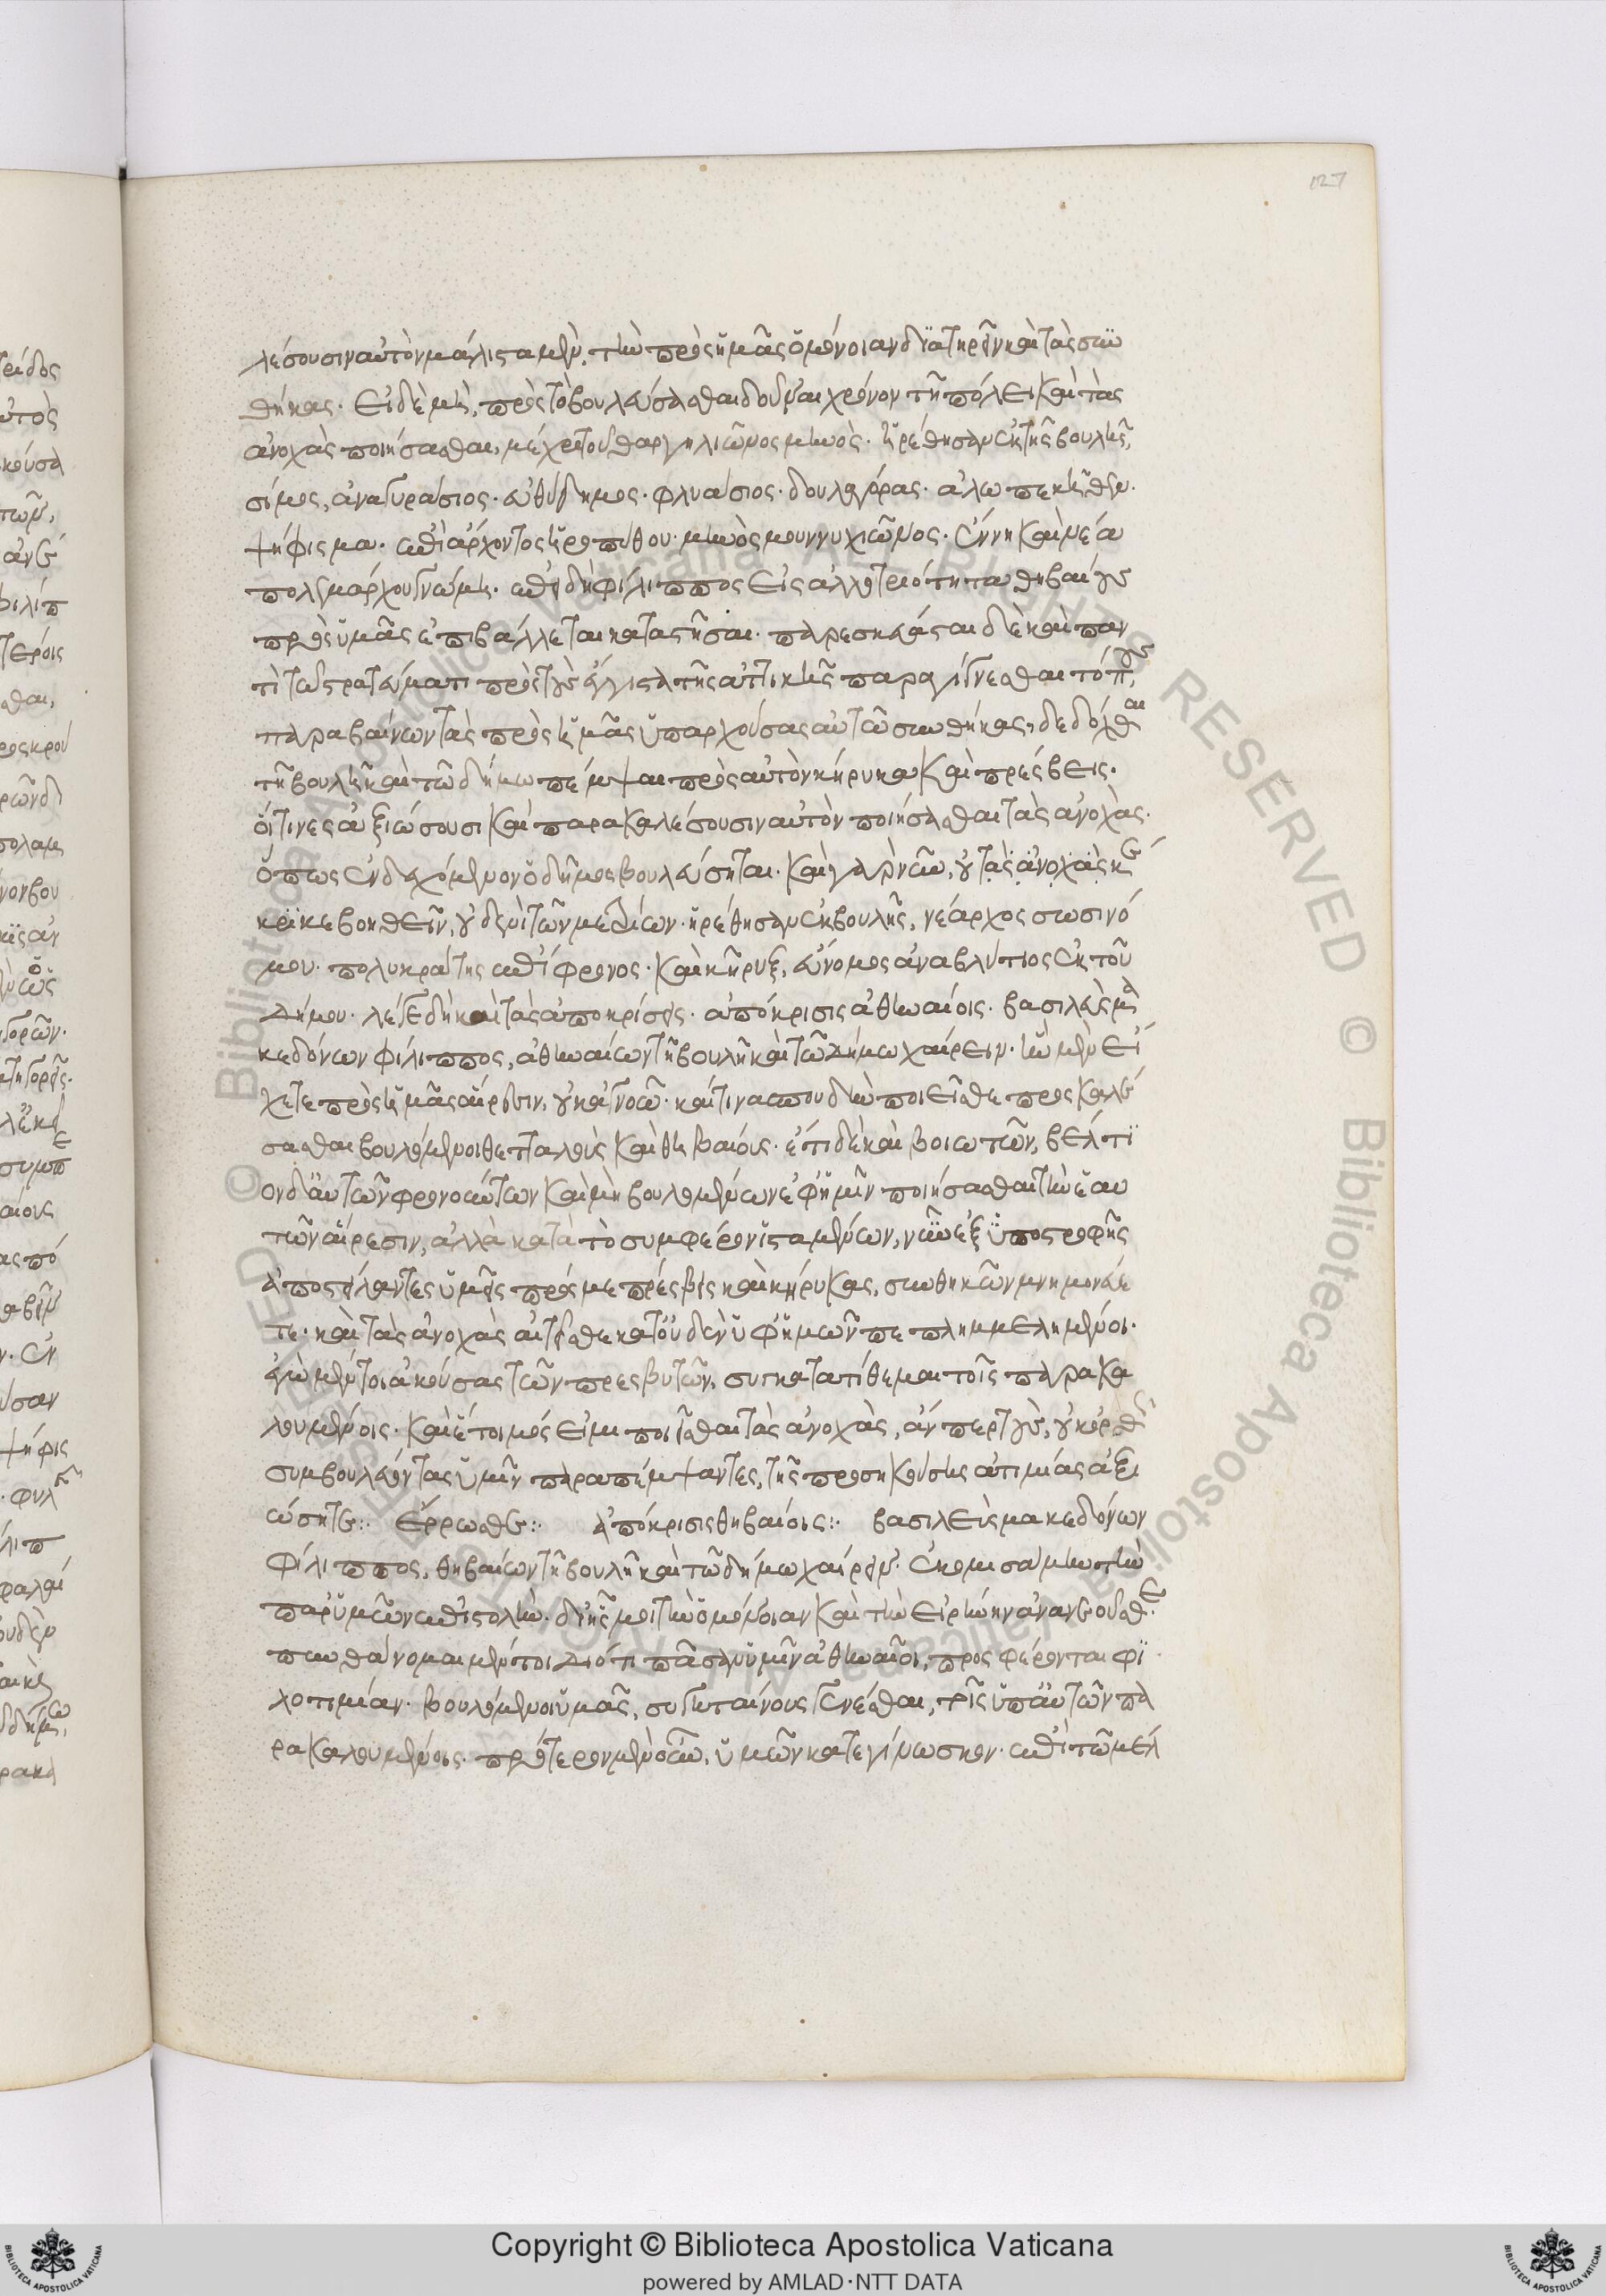 127
λέσουσιν αὐτὸν μάλιστα μὲν, τὴν πρὸς ἡμᾶς ὁμόνοιαν διατηρεῖν καὶ τὰς συν
θήκας· εἰ δὲ μὴ, πρὸς τὸ βουλεύσασθαι δοῦναι χρόνον τῇ πόλει καὶ τὰς
ἀνοχὰς ποιήσασθαι, μέχρι τοῦ θαργηλιῶνος μηνός· ἡρέθησαν ἐκ τῆς βουλῆς,
σίμος, ἀναγυράσιος· εὐθύδημος· φλυάσιος· βουλαγόρας· ἀλωπεκῆθεν·
ψήφισμα· ἐπὶ ἄρχοντος ἡροπύθου· μηνὸς μουνυχιῶνος· ἕνη καὶ νέα
πολεμάρχου γνώμη· ἐπειδὴ φίλιππος εἰς ἀλλοτριότητα θηβαίους
πρὸς ὑμᾶς ἐπιβάλλεται καταστῆσαι· παρεσκεύασται δὲ καὶ παν
τὶ τῷ στρατεύματι πρὸς τοὺς ἔγγιστα τῆς ἀττικῆς παραγίγνεσθαι τόπους,
παραβαίνων τὰς πρὸς ἡμᾶς ὑπαρχούσας αὐτῷ συνθήκας, δεδόχθαι
τῇ βουλῇ καὶ τῷ δήμῳ πέμψαι πρὸς αὐτὸν κήρυκα καὶ πρέσβεις·
οἵτινες ἀξιώσουσι καὶ παρακαλέσουσιν αὐτὸν ποιήσασθαι τὰς ἀνοχάς·
ὅπως ἐνδεχόμενον ὁ δῆμος βουλεύσηται· καὶ γὰρ νῦν, οὐ τὰς ἀνοχὰς κε
κρικε βοηθεῖν, οὐδενὶ τῶν μετρίων· ἡρέθησαν ἐκ βουλῆς, νέαρχος σωσινό
μου· πολυκράτης ἐπίφρονος· καὶ κῆρυξ, εὔνομος ἀναφλύστιος ἐκ τοῦ
δήμου· λέγε δὴ καὶ τὰς ἀποκρίσεις· ἀπόκρισις ἀθηναίοις· βασιλεὺς μα
κεδόνων φίλιππος, ἀθηναίων τῇ βουλῇ καὶ τῷ δήμῳ χαίρειν· ἣν μὲν εἴ
χετε πρὸς ἡμᾶς αἵρεσιν, οὐκ ἀγνοῶ· καὶ τίνα σπουδὴν ποιεῖσθε προσκαλέ
σασθαι βουλόμενοι θετταλοὺς καὶ θηβαίους· ἔτι δὲ καὶ βοιωτῶν, βέλτι
ον δ' αὐτῶν φρονούντων καὶ μὴ βουλομένων ἐφ' ἡμῖν ποιήσασθαι τὴν ἑαυ
τῶν αἵρεσιν, ἀλλὰ κατὰ τὸ συμφέρον ἱσταμένων, νῦν ἐξ ὑποστροφῆς
ἀποστείλαντες ὑμεῖς πρός με πρέσβεις καὶ κήρυκας, συνθηκῶν μνημονεύε
τε· καὶ τὰς ἀνοχὰς αἰτεῖσθε κατ' οὐδὲν ὑφ' ἡμῶν πεπλημμελημένοι·
ἐγὼ μέντοι ἀκούσας τῶν πρεσβυτῶν, συγκατατίθεμαι τοῖς παρακα
λουμένοις· καὶ ἕτοιμός εἰμι ποιεῖσθαι τὰς ἀνοχὰς, ἄν περ τοὺς, οὐκ ὀρθῶς
συμβουλεύοντας ὑμῖν παραπέμψαντες, τῆς προσηκούσης ἀτιμίας ἀξι
ώσητε:· ἔρρωσθε:· ἀπόκρισις θηβαίοις:· βασιλεὺς μακεδόνων
φίλιππος, θηβαίων τῇ βουλῇ καὶ τῷ δήμῳ χαίρειν· ἐκομισάμην τὴν
παρ' ὑμῶν ἐπιστολὴν· δι' ἧς μοι τὴν ὁμόνοιαν καὶ τὴν εἰρήνην ἀνανεοῦσθε·
πυνθάνομαι μέντοι διότι πᾶσαν ὑμῖν ἀθηναῖοι, προσφέρονται φι
λοτιμίαν· βουλόμενοι ὑμᾶς, συγκαταίνους γενέσθαι, τοῖς ὑπ' αὐτῶν πα
ρακαλουμένοις· πρότερον μὲν οὖν, ὑμῶν κατεγίνωσκον· ἐπὶ τῷ μέλ
Copyright © Biblioteca Apostolica Vaticana
powered by AMLAD·NTT DATA